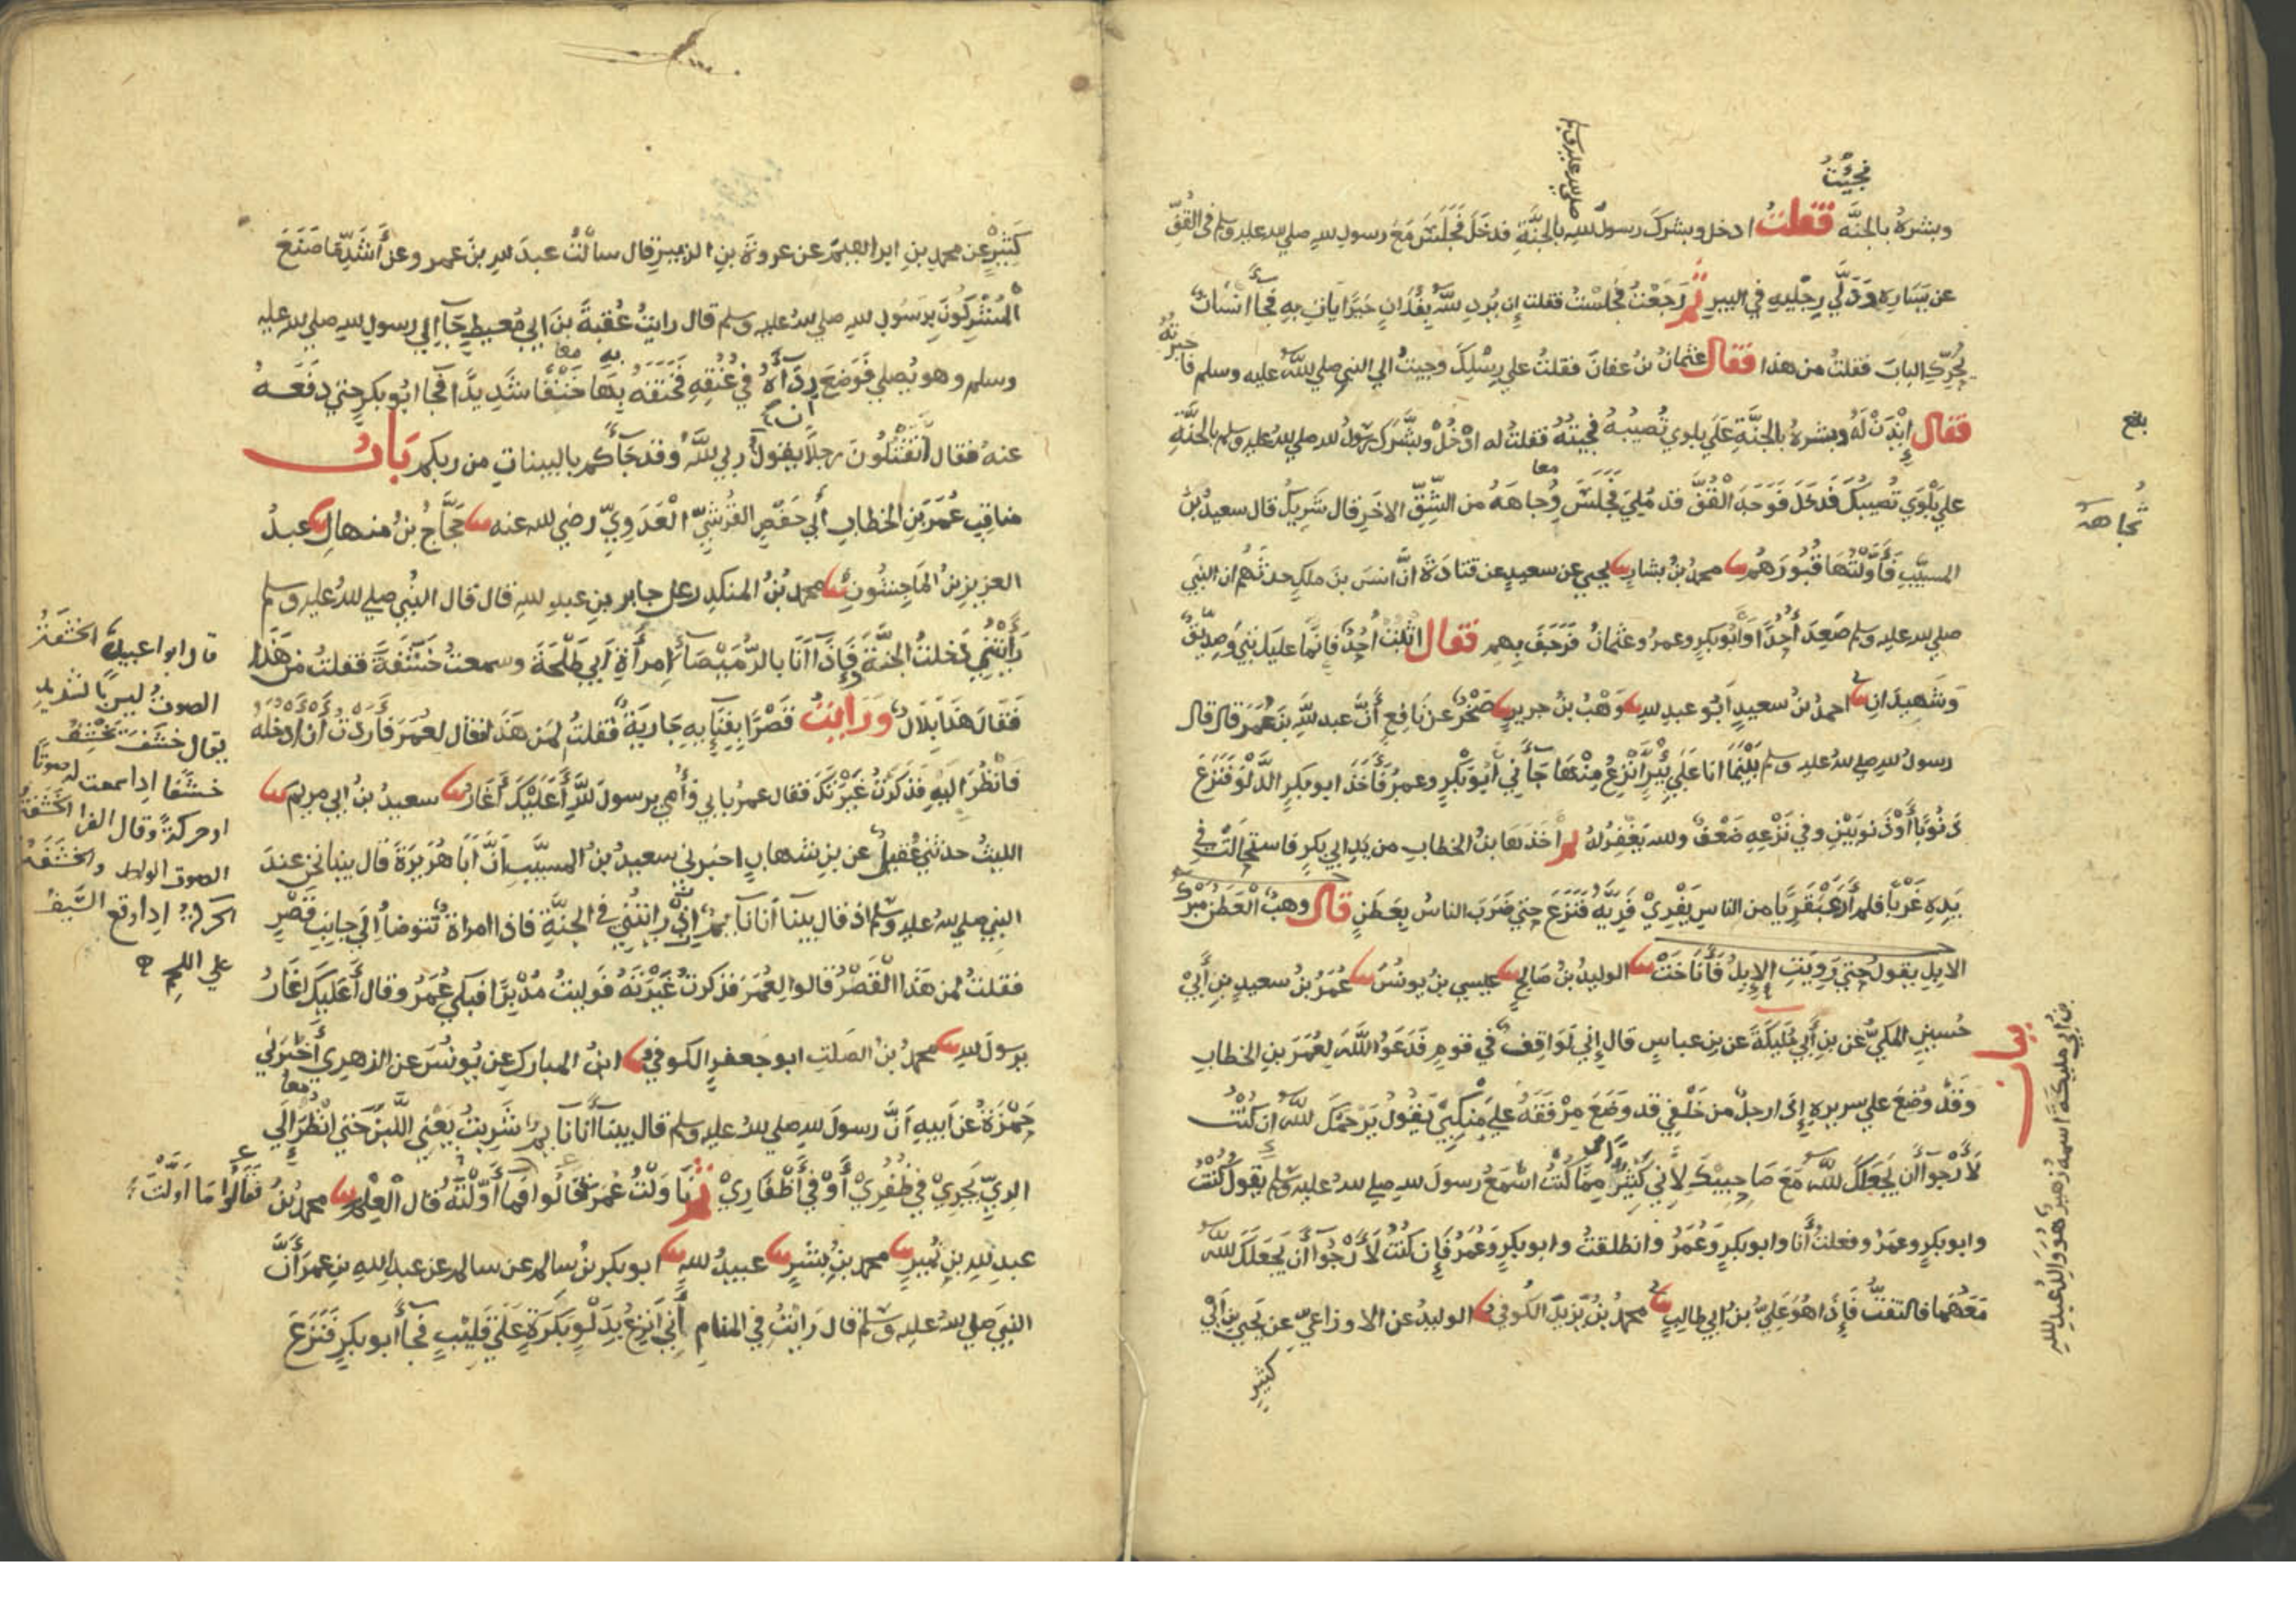 فجئت
صلى الله عليه وسلم
وبشره بالجنة فقلت ادخل وبشرك رسول الله بالجنة فدخل فجلس مع رسول الله صلى الله عليه وسلم في القف
عن يساره ودلى رجليه في البير ثم رجعت فجلست فقلت ان يرد الله بفلان خيرا يات به فجاء انسان
يحرك الباب فقلت من هذا فقال عثمان بن عفان فقلت على رسلك وجيت الى النبي صلى الله عليه وسلم فاخبرته
فقال ايذن له وبشره بالجنة على بلوى تصيبه فجيته فقلت له ادخل وبشرك رسول الله صلى الله عليه وسلم بالجنة
على بلوى تصيبك فدخل فوجد القف قد ملئ فجلس وجاهه من الشق الاخر قال شريك قال سعيد بن
المسيب فاولتها قبورهم محمد بن بشار يحيى عن سعيد عن قتادة ان انس بن ملك حدثهم ان النبي
صلى الله عليه وسلم صعد احدا وابو بكر وعمر وعثمان فرجف بهم فقال اثبت احد فانما عليك نبي وصديق
وشهيدان احمد بن سعيد ابو عبد الله وهب بن جرير صخر عن نافع ان عبد الله بن عمر قال قال
رسول الله صلى الله عليه وسلم بينما انا على بير انزع منها جاني ابو بكر وعمر فاخذ ابو بكر الدلو فنزع
ذنوبا او ذنوبين وفي نزعه ضعف والله يغفر له ثم اخذها بن الخطاب من يد ابي بكر فاستحالت في
يده غربا فلم ار عبقريا من الناس يفري فريه فنزع حتى ضرب الناس بعطن قال وهب العطن مبرك
الابل يقول حتى رويت الابل فاناخت الوليد بن صالح عيسى بن يونس عمر بن سعيد بن ابي
حسين المكي عن بن ابي مليكة عن بن عباس قال اني لواقف في قوم فدعوا الله لعمر بن الخطاب
وقد وضع على سريره اذا رجل من خلفي قد وضع مرفقه على منكبي يقول يرحمك الله ان كنت
لارجوا ان يجعلك الله مع صاحبيك لاني كثير مما كنت اسمع رسول الله صلى الله عليه وسلم يقول كنت
وابو بكر وعمر وفعلت انا وابو بكر وعمر وانطلقت وابو بكر وعمر فان كنت لارجوا ان يجعلك الله
معهما فالتفت فاذا هو علي بن ابي طالب محمد بن يزيد الكوفي الوليد عن الاوزاعي عن يحيى بن ابي
كثير
بلغ
تجاهه
بيان
بن ابي مليكة اسمه زهير وهو والد عبد الله
كثير عن محمد بن ابراهيم عن عروة بن الزبير قال سالت عبد الله بن عمرو عن اشد ما صنع
المشركون برسول الله صلى الله عليه وسلم قال رايت عقبة بن ابي معيط جا الى رسول الله صلى الله عليه
وسلم وهو يصلي فوضع رداه في عنقه فخنقه بها خنقا شديدا فجا ابو بكر حتى دفعه
عنه فقال اتقتلون رجلا يقول ربي الله وقد جاكم بالبينات من ربكم باب
مناقب عمر بن الخطاب ابي حفص القرشي العدوي رضي الله عنه حجاج بن منهال عبد
العزيز بن الماجشون محمد بن المنكدر عن جابر بن عبد الله قال قال النبي صلى الله عليه وسلم
رايتني دخلت الجنة فاذا انا بالرميصا امراة ابي طلحة وسمعت خشفة فقلت من هذا
فقال هذا بلال ورايت قصرا بفنايه جارية فقلت لمن هذا فقال لعمر فاردت ان ادخله
فانظر اليه فذكرت غيرتك فقال عمر بابي وامي يرسول الله اعليك اغار سعيد بن ابي مريم
الليث حدثني عقيل عن بن شهاب اخبرني سعيد بن المسيب ان ابا هريرة قال بينا نحن عند
النبي صلى الله عليه وسلم اذ قال بينا انا نايم رايتني في الجنة فاذا امراة تتوضا الى جانب قصر
فقلت لمن هذا القصر قالوا لعمر فذكرت غيرته فوليت مدبرا فبكى عمر وقال اعليك اغار
يرسول الله محمد بن الصلت ابو جعفر الكوفي ابن المبارك عن يونس عن الزهري اخبرني
حمزة عن ابيه ان رسول الله صلى الله عليه وسلم قال بينا انا نايم شربت يعني اللبن حتى انظر الى
الري يجري في ظفري او في اظفاري ثم ناولت عمر قالوا فما اولته قال العلم محمد بن
فقالوا ما اولت
عبد الله بن نمير محمد بن بشر عبيد الله ابو بكر بن سالم عن سالم عن عبد الله بن عمر ان
النبي صلى الله عليه وسلم قال رايت في المنام اني انزع بدلو بكرة على قليب فجا ابو بكر فنزع
قال ابو عبيد الخشفة
الصوت ليس بالشديد
يقال خشف يخشف
خشفا اذا سمعت له صوتا
او حركة وقال الفرا الخشفة
الصوت الواحد والخشفة
الحركة اذا وقع السيف
على اللحم